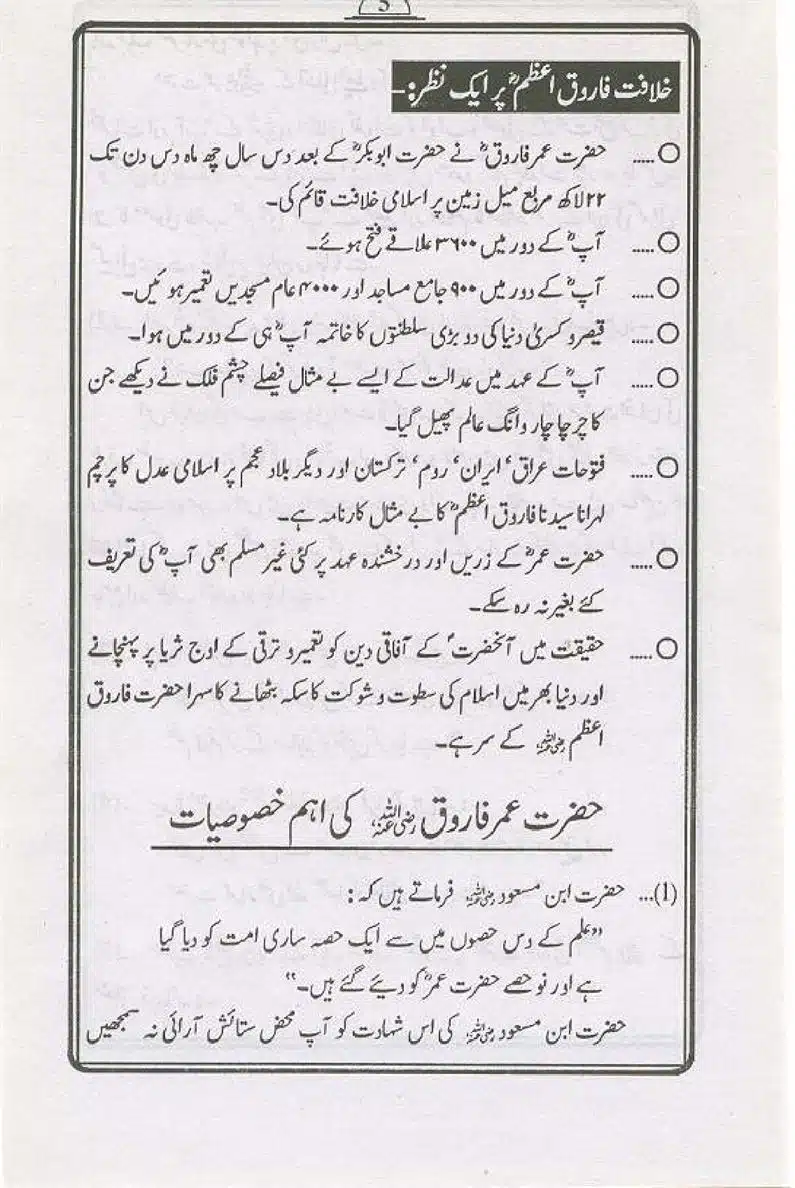 5
خلافت فاروق اعظمؓ پر ایک نظر:۔
○..... حضرت عمر فاروقؓ نے حضرت ابوبکرؓ کے بعد دس سال چھ ماہ دس دن تک
۲۲ لاکھ مربع میل زمین پر اسلامی خلافت قائم کی۔
○..... آپؓ کے دور میں ۳۶۰۰ علاقے فتح ہوئے۔
○..... آپؓ کے دور میں ۹۰۰ جامع مساجد اور ۴۰۰۰ عام مسجدیں تعمیر ہوئیں۔
○..... قیصر و کسریٰ دنیا کی دو بڑی سلطنتوں کا خاتمہ آپؓ ہی کے دور میں ہوا۔
○..... آپؓ کے عہد میں عدالت کے ایسے بے مثال فیصلے چشم فلک نے دیکھے جن
کا چرچا چار دانگ عالم پھیل گیا۔
○..... فتوحات عراق‘ ایران‘ روم‘ ترکستان اور دیگر بلاد عجم پر اسلامی عدل کا پرچم
لہرانا سیدنا فاروق اعظمؓ کا بے مثال کارنامہ ہے۔
○..... حضرت عمرؓ کے زریں اور درخشندہ عہد پر کئی غیر مسلم بھی آپؓ کی تعریف
کئے بغیر نہ رہ سکے۔
○..... حقیقت میں آنحضرتؐ کے آفاقی دین کو تعمیر و ترقی کے اوج ثریا پر پہنچانے
اور دنیا بھر میں اسلام کی سطوت و شوکت کا سکہ بٹھانے کا سہرا حضرت فاروق
اعظم رضی اللہ عنہ کے سر ہے۔
حضرت عمر فاروق رضی اللہ عنہ کی اہم خصوصیات
(1)... حضرت ابن مسعود رضی اللہ عنہ فرماتے ہیں کہ:
”علم کے دس حصوں میں سے ایک حصہ ساری امت کو دیا گیا
ہے اور نو حصے حضرت عمرؓ کو دیئے گئے ہیں۔“
حضرت ابن مسعود رضی اللہ عنہ کی اس شہادت کو آپ محض ستائش آرائی نہ سمجھیں